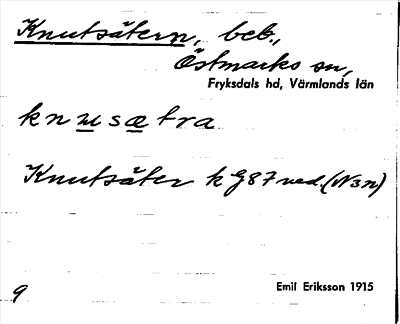 Knutsätern, beb.,
Östmarks sn,
Fryksdals hd, Värmlands län
knusætra
Knutsäter k G87 ved. (N3n)
Emil Eriksson 1915
9